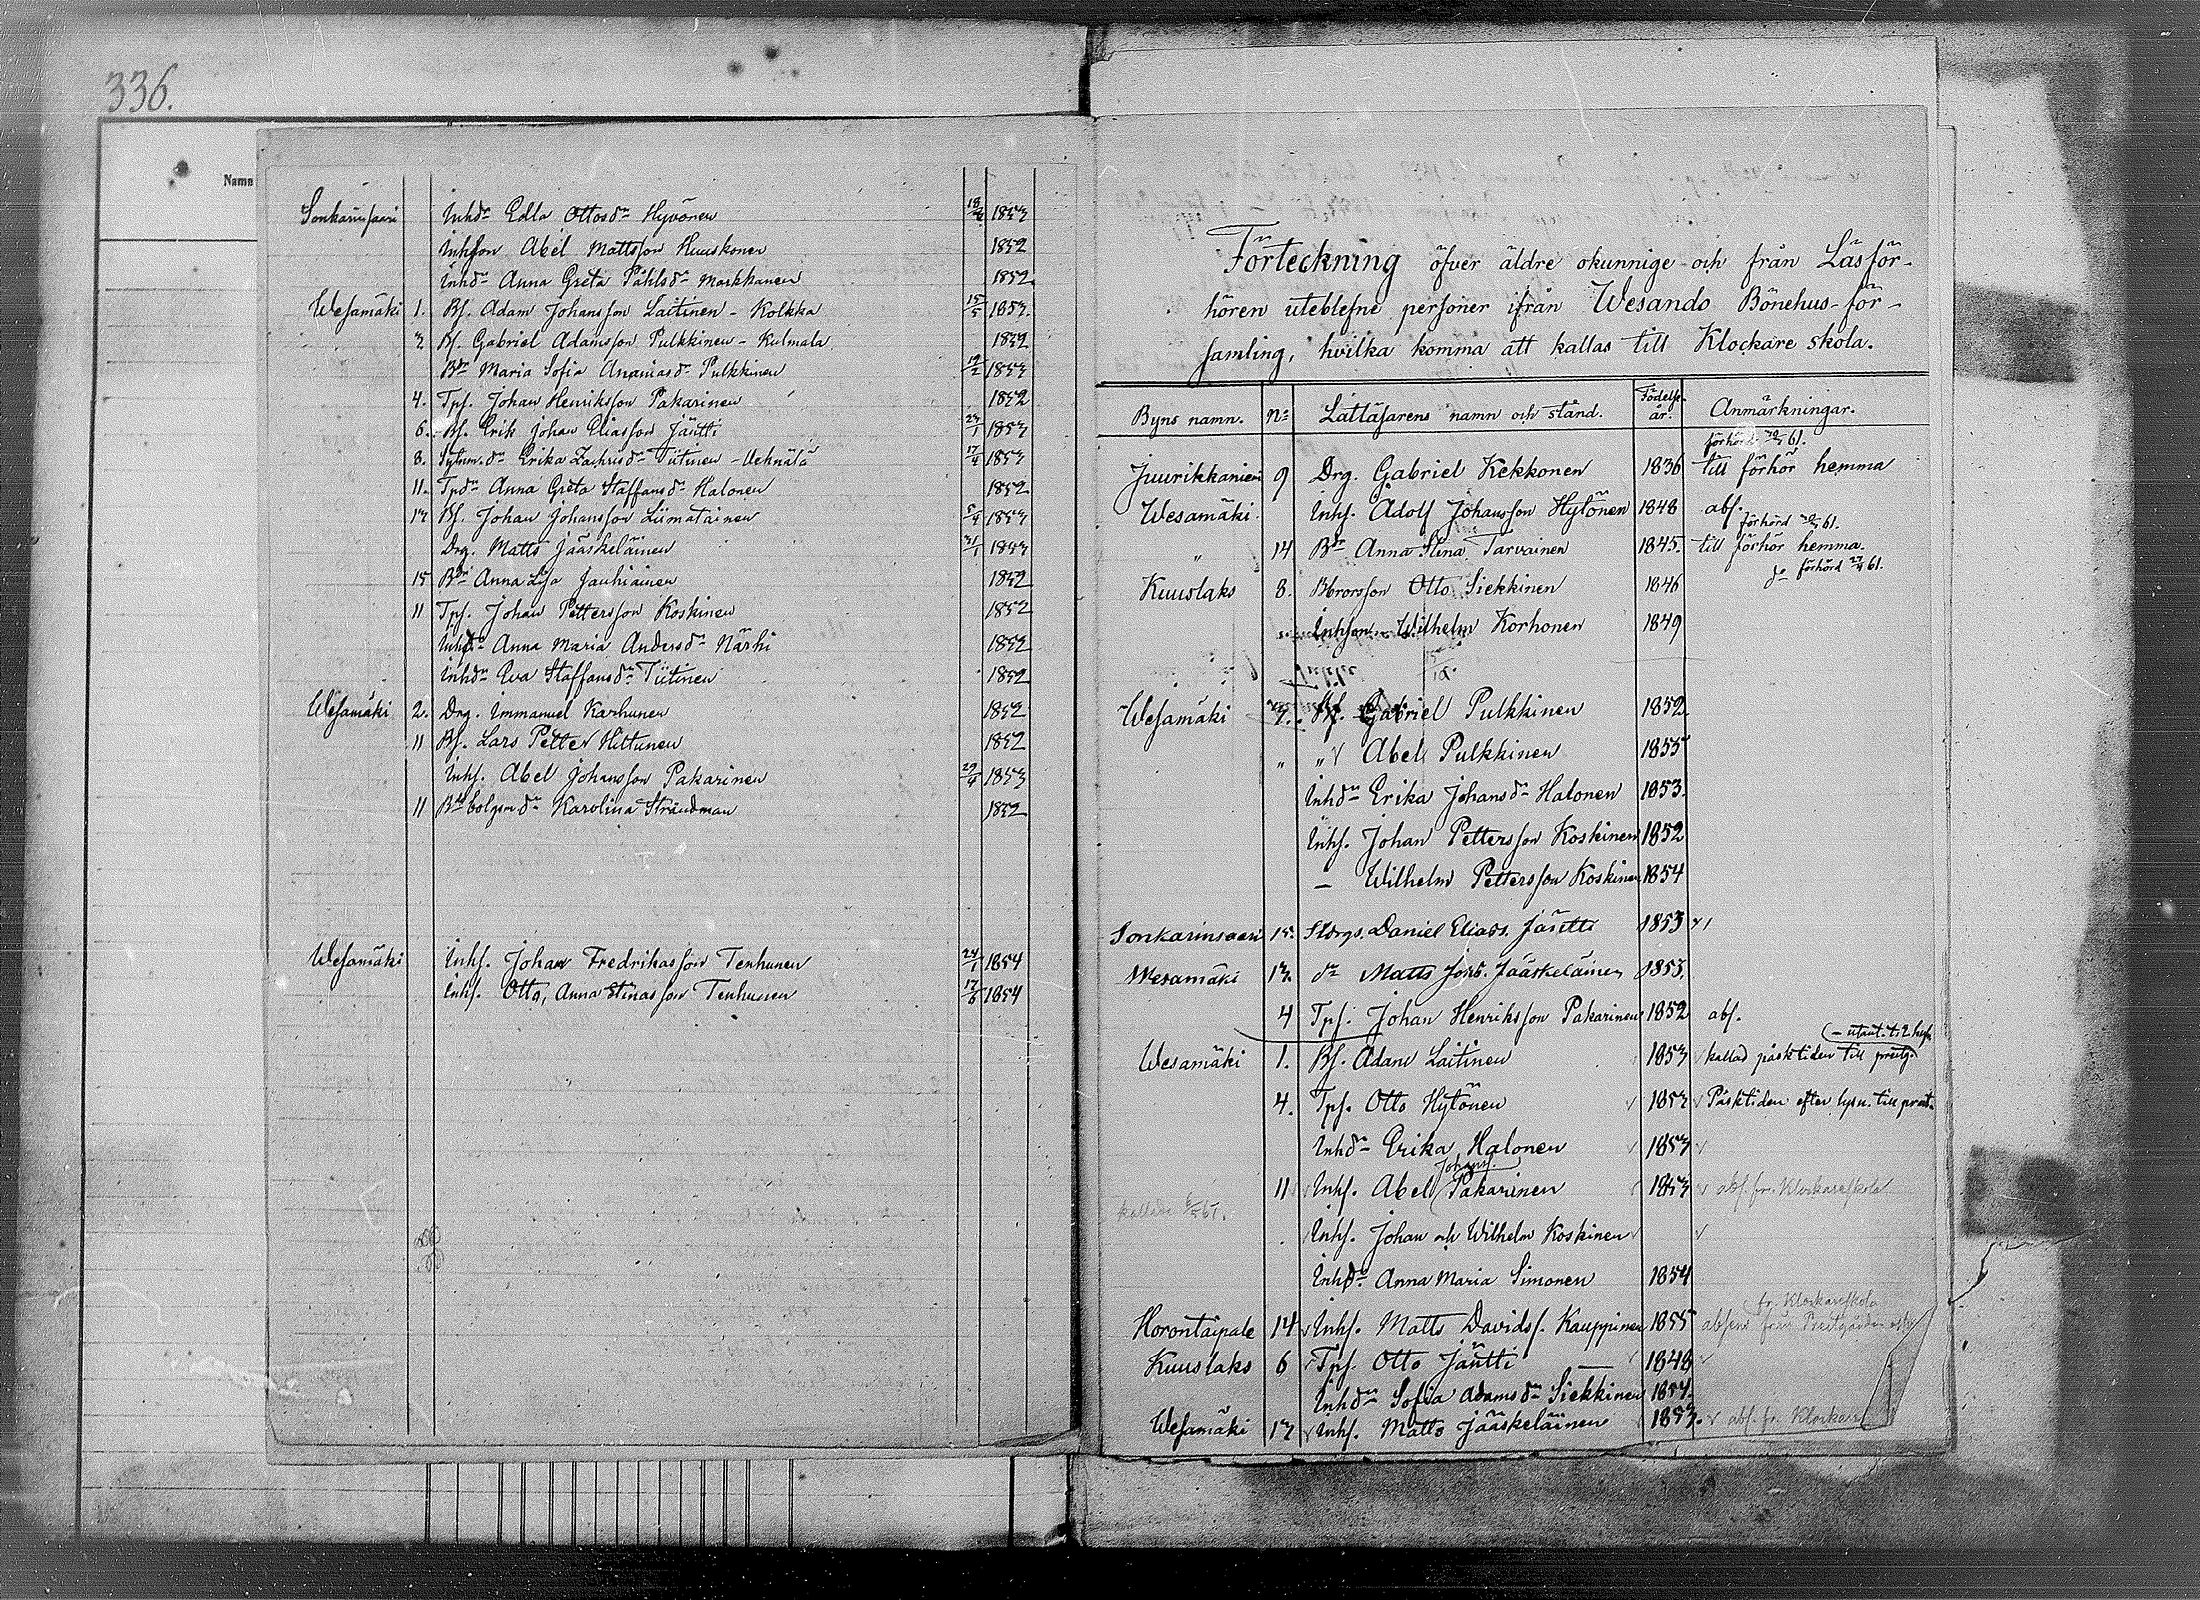 336.
Name
Sonkarinsaari Inhdr Edla Ottosdr Hyvönen 18/2 1853
Inhson Abel Mattsson Huuskonen 1852
Inhdr Anna Greta Påhlsdr Markkanen 1852
Wesamäki 1. Bf. Adam Johansson Laitinen - Kolkka 15/5 1853.
2 Bf. Gabriel Adamsson Pulkkinen - Kulmala 1852
Bdr Maria Sofia Ananiasdr Pulkkinen 19/2 1853
4. Tpf. Johan Henriksson Pakarinen 1852
6. Bf. Erik Johan Eliasson Jäntti 23/1 1853
8. Sytnm.dr Erika Zachrisdr Tiitinen 17/4 1853
11. Tpdr Anna Greta Staffansdr Halonen 1852
13 Bf. Johan Johansson Liimatainen 5/4 1853
Drg. Matts Jääskeläinen 31/1 1853
15 Bdr Anna Lisa Jauhiainen 1852
11 Tpf. Johan Pettersson Koskinen 1852
Inhdr Anna Maria Andersdr Närhi 1852
Inhdr Eva Staffansdr Tiitinen 1852
Wesamäki 2. Drg. Immanuel Karhunen 1852
11 Bf. Lars Petter Hittunen 1852
Inhf. Abel Johansson Pakarinen 29/4 1853
11 dr Karolina Strandman 1852
Wesamäki Inhf. Johan Fredrikasson Tenhunen 24/1 1854
Inhf. Otto, Anna Stinasson Tenhunen 17/6 1854
Förteckning öfver äldre okunnige och från Läsför-
hören uteblefne personer ifrån Wesando Bönehus-för-
samling, hvilka komma att kallas till Klockare skola.
Byns namn. No Lättläsarens namn och stånd. Födelse-år. Anmärkningar.
förhörd 61.
Juurikkaniemi 9 Drg. Gabriel Kekkonen 1836 till förhör hemma
Wesamäki Inhf. Adolf Johansson Hytönen 1848 abs.
förhörd 61.
" 14 Bdr Anna Stina Tarvainen 1845. till förhör hemma.
Kuuslaks 8. Brorsson Otto Siekkinen 1846 do förhörd 61.
Inhson Wilhelm Korhonen 1849
Wesamäki 2. Bf. Gabriel Pulkkinen 1852
" " Abel Pulkkinen 1855
Inhdr Erika Johansdr Halonen 1853.
Inhf. Johan Pettersson Koskinen 1852
— Wilhelm Pettersson Koskinen 1854
Sonkarinsaari 15. Daniel Eliass. Jäntti 1853
Wesamäki 13. dr Matts Johs. Jääskeläinen 1853.
4 Tpf. Johan Henriksson Pakarinen 1852 abs.
Wesamäki 1. Bf. Adam Laitinen 1853 kallad påsktiden till prestg.
4. Tpf. Otto Hytönen 1853 Påsktiden efter lysn. till prest.
Inhdr Erika Halonen 1853
Johanss.
11 Inhf. Abel Pakarinen 1853 abs. fr. Klockareskola
kallade 61.
Inhf. Johan och Wilhelm Koskinen
Inhdr Anna Maria Simonen 1854
fr. Klockareskola
Horontaipale 14 Inhf. Matts Davidss. Kauppinen 1855 absens från Prestgården
Kuuslaks 6 Tpf. Otto Jäntti — 1848
Inhdr Sofia Adamsdr Siekkinen 1854.
Wesamäki 13 Inhf. Matts Jääskeläinen 1853. abs. fr. Klockare